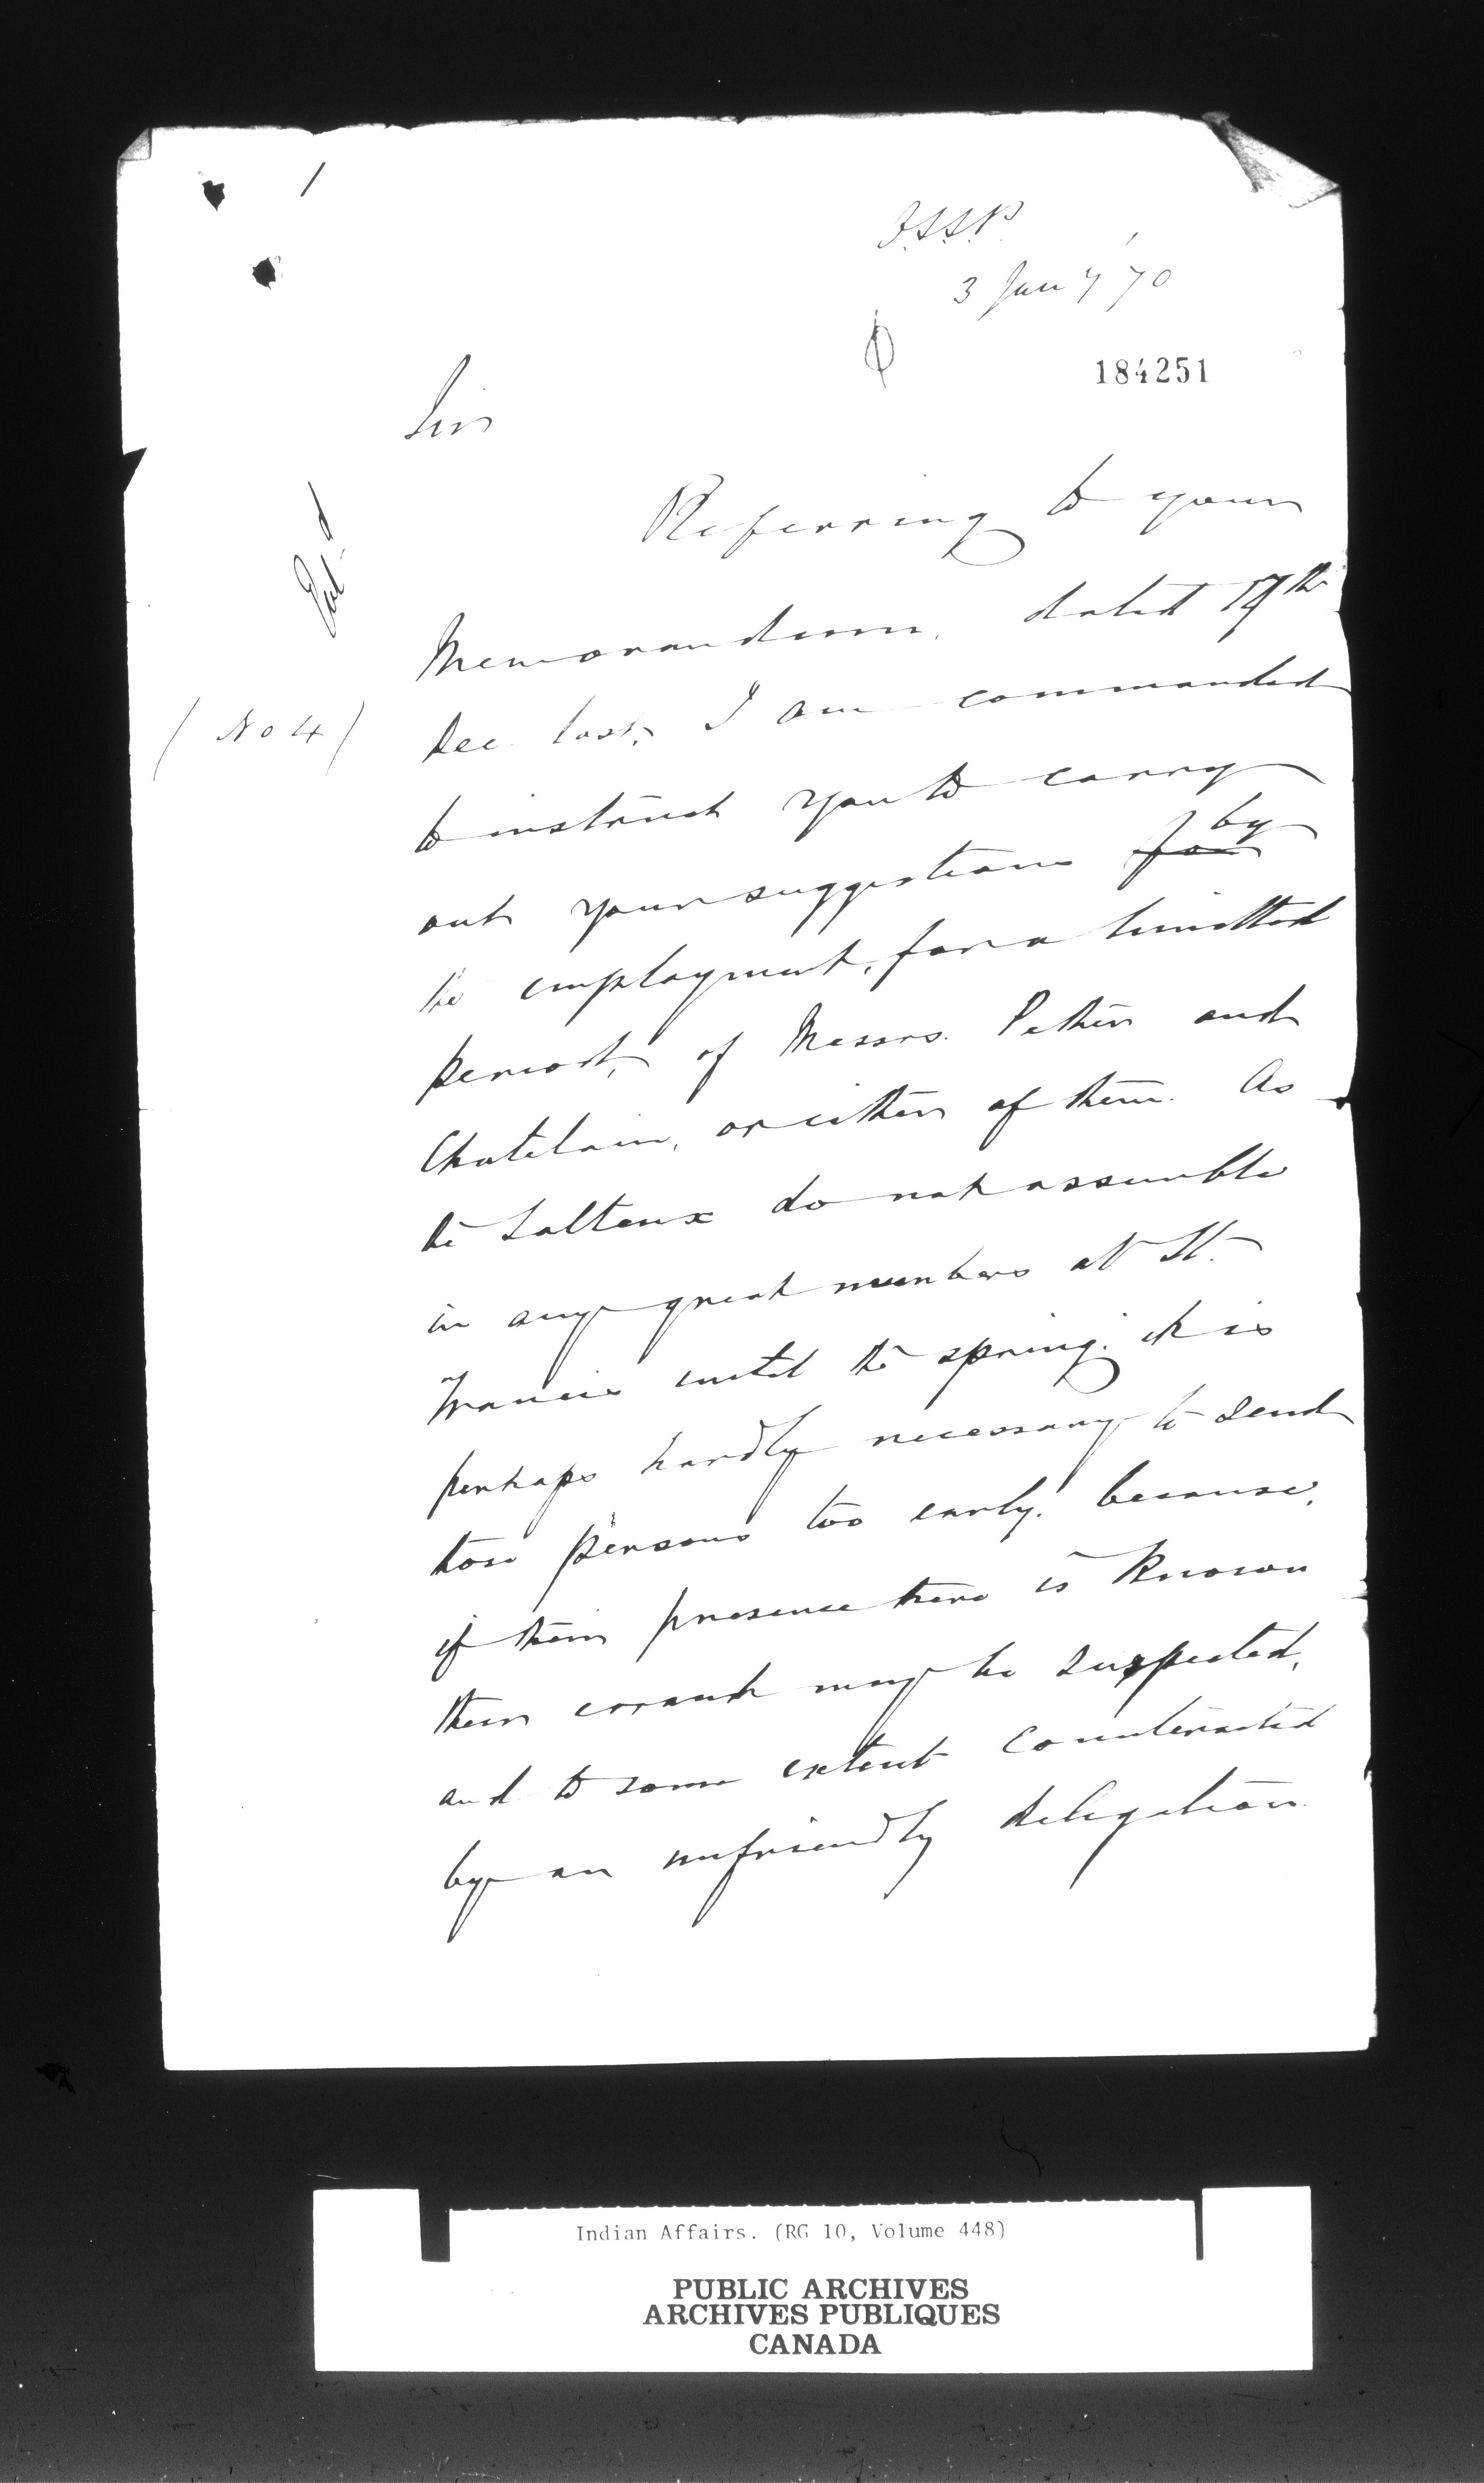 1
O.S.S.P.
3 Jany '70
184251
Sir
Ent.d
Referring to your
Memorandum, dated 17th
(No 4)
Dec. last, I am commanded
to instruct you to carry
out your suggestions for by
the employment, for a limitted
period, of Messrs. Pether and
Chatelain, or either of them. As
the Salteux do not assemble
in any great numbers at Ft.
Francis until the spring; it is
perhaps hardly necessary to send
those persons too early, because,
if their presence there is known
their errand may be suspected,
and to some extent counteracted
by an unfriendly delegation
Indian Affairs. (RG 10, Volume 448)
PUBLIC ARCHIVES
ARCHIVES PUBLIQUES
CANADA